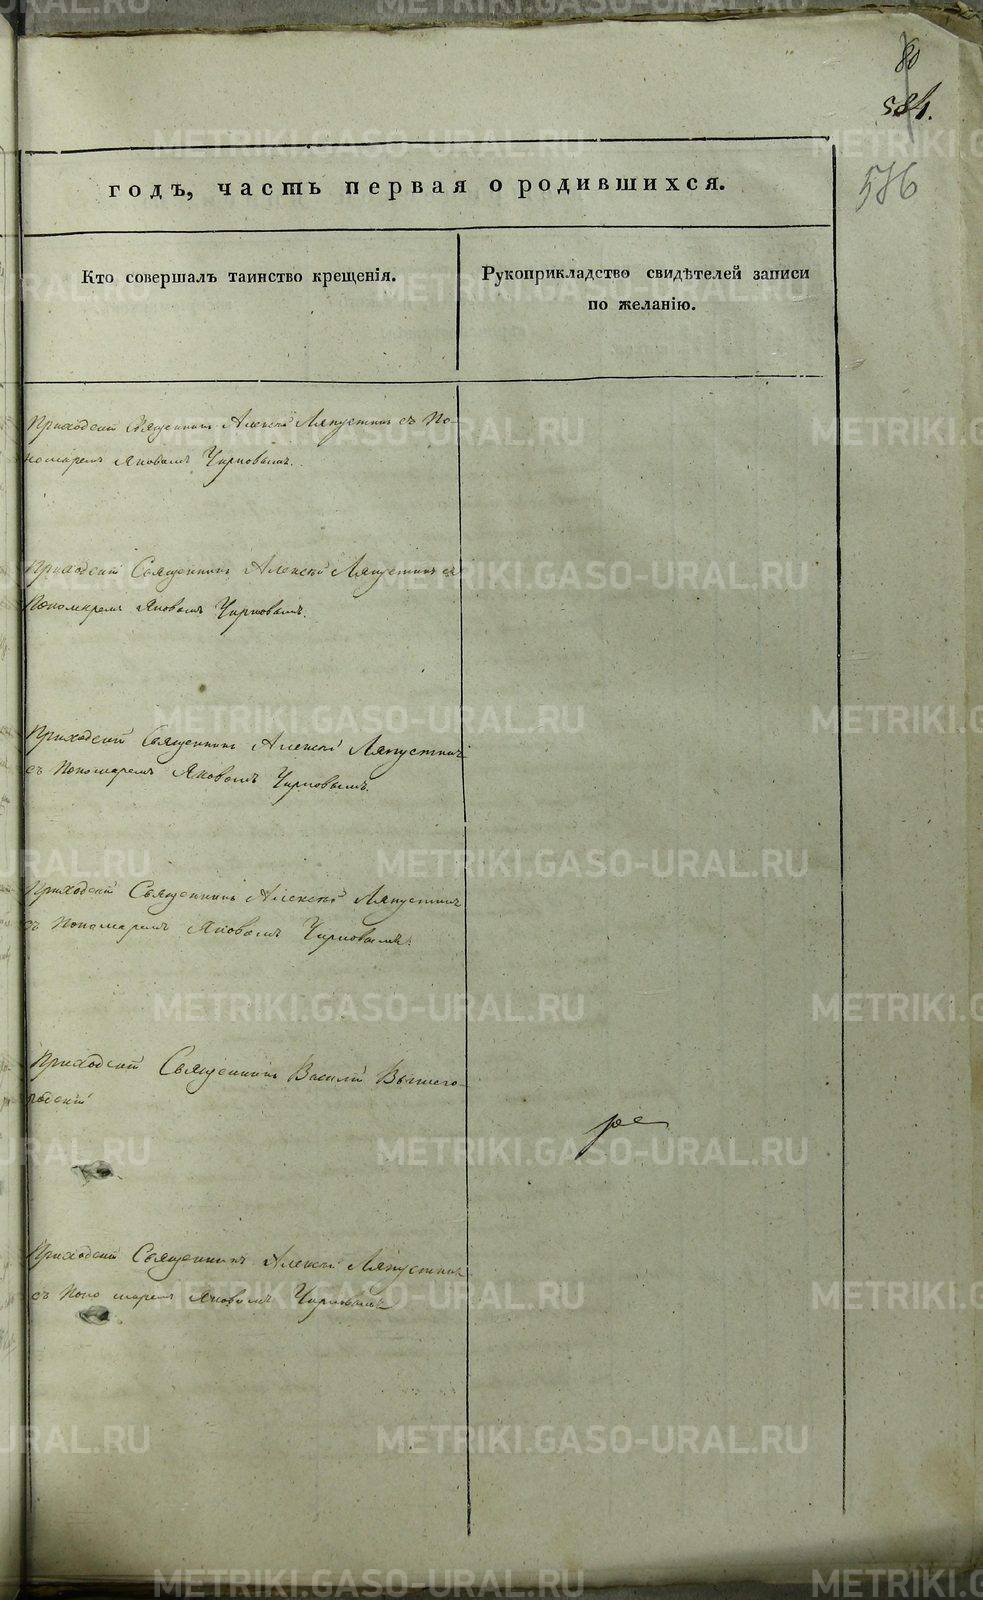 80
584.
586
годъ, часть первая о родившихся.
Кто совершалъ таинство крещенія.
Рукоприкладство свидѣтелей записи
по желанію.
Приходскій Священникъ Алексѣй Ляпустинъ съ По-
номаремъ Яковомъ Чирковымъ.
Приходскій Священникъ Алексѣй Ляпустинъ съ
Пономаремъ Яковомъ Чирковымъ.
Приходскій Священникъ Алексѣй Ляпустинъ
съ Пономаремъ Яковомъ Чирковымъ.
Приходскій Священникъ Алексѣй Ляпустинъ
съ Пономаремъ Яковомъ Чирковымъ.
Приходскій Священникъ Василій Вышего-
родскій
Приходскій Священникъ Алексѣй Ляпустинъ
съ Пономаремъ Яковомъ Чирковымъ
METRIKI.GASO-URAL.RU